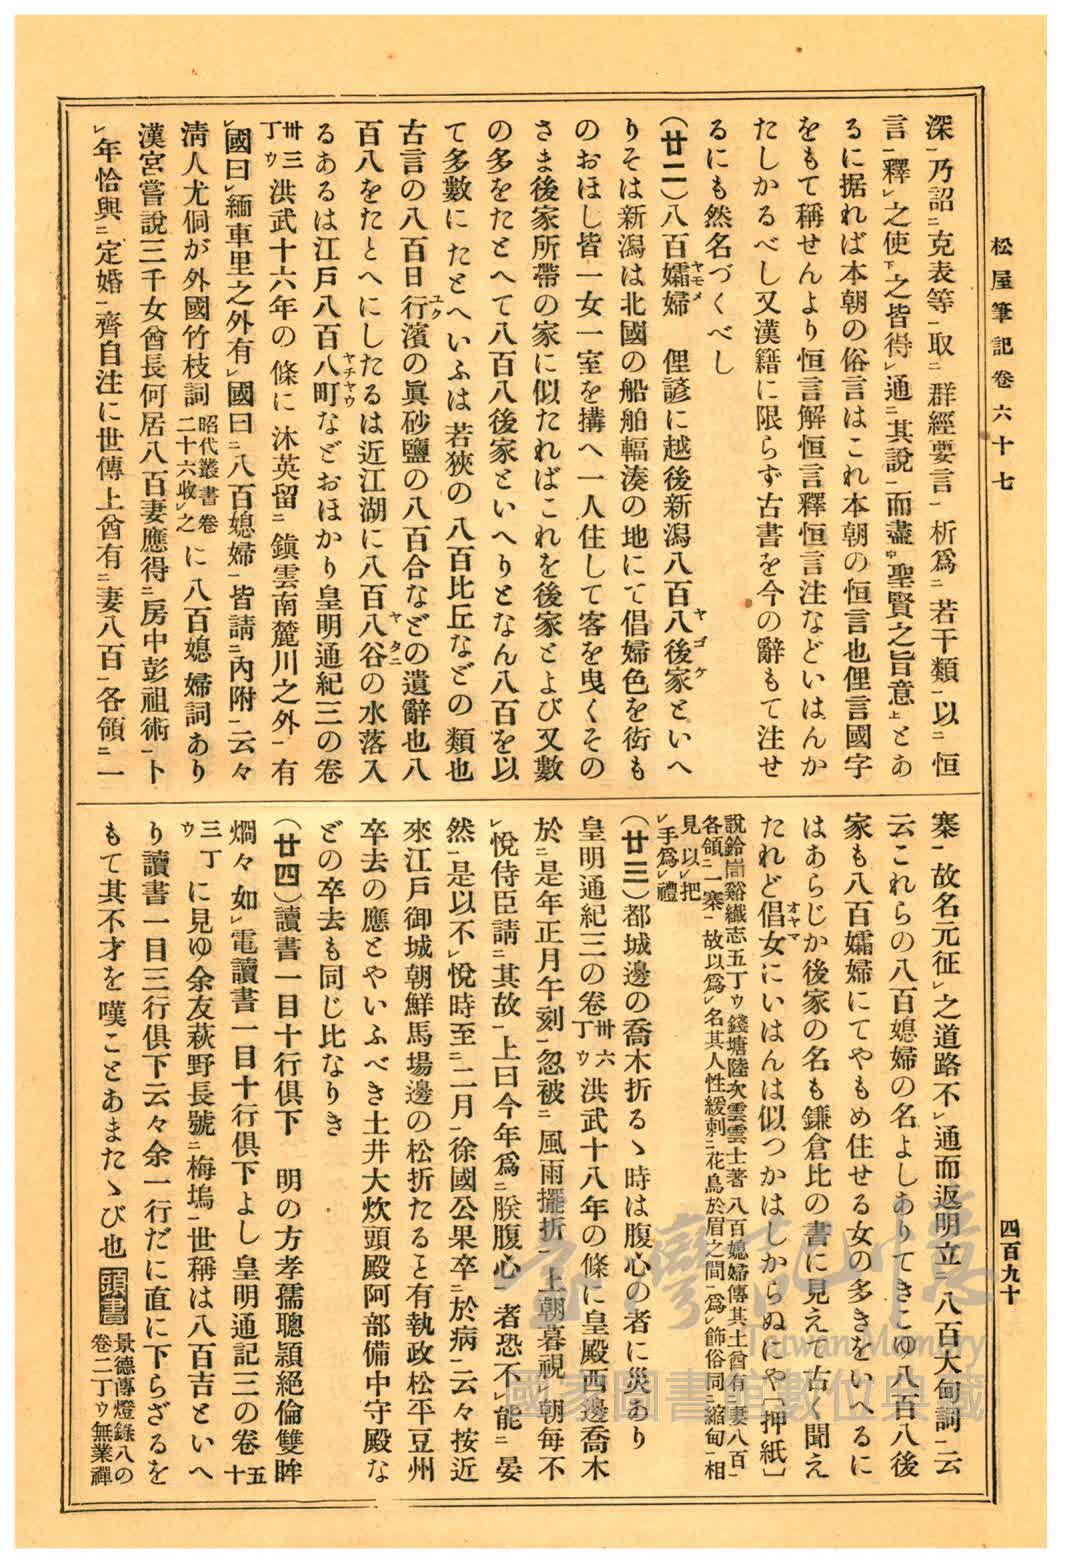 松屋筆記卷六十七
四百九十
深一乃詔二克表等一取二群經要言一析爲二若干類一以二恒
言一釋レ之使下之皆得レ通二其說一而盡中聖賢之旨意上とあ
るに据れば本朝の俗言はこれ本朝の恒言也俚言國字
をもて稱せんより恒言解恒言釋恒言注などいはんか
たしかるべし又漢籍に限らず古書を今の辭もて注せ
るにも然名づくべし
(廿二)八百孀婦ヤモメ 俚諺に越後新潟八百八後家ヤゴケといへ
りそは新潟は北國の船舶輻湊の地にて倡婦色を衒も
のおほし皆一女一室を搆へ一人住して客を曳くその
さま後家所帶の家に似たればこれを後家とよび又數
の多をたとへて八百八後家といへりとなん八百を以
て多數にたとへいふは若狹の八百比丘などの類也
古言の八百日行ユク濱の眞砂鹽の八百合などの遺辭也八
百八をたとへにしたるは近江湖に八百八谷ヤタニの水落入
るあるは江戸八百八町ヤチヤウなどおほかり皇明通紀三の卷
卅三丁ウ洪武十六年の條に沐英留二鎭雲南麓川之外一有
レ國曰レ緬車里之外有レ國曰二八百媳婦一皆請二內附一云々
淸人尤侗が外國竹枝詞昭代叢書卷二十六收レ之に八百媳婦詞あり
漢宮嘗說三千女酋長何居八百妻應得二房中彭祖術一卜
レ年恰與二定婚一齊自注に世傳上酋有二妻八百一各領二一
寨一故名元征レ之道路不レ通而返明立二八百大甸詞一云
云これらの八百媳婦の名よしありてきこゆ八百八後
家も八百孀婦にてやもめ住せる女の多きをいへるに
はあらじか後家の名も鎌倉比の書に見えて古く聞え
たれど倡女オヤマにいはんは似つかはしからぬにや〔押紙〕
說鈴峒谿纖志五丁ウ錢塘陸次雲雲士著八百媳婦傳其土酋有二妻八百一
各領二一寨一故以爲レ名其人性緩刺二花鳥於眉之間一爲レ飾俗同二緬甸一相
見以レ把
レ手爲レ禮
(廿三)都城邊の喬木折るゝ時は腹心の者に災あり
皇明通紀三の卷卅六丁ウ洪武十八年の條に皇殿西邊喬木
於二是年正月午刻一忽被二風雨擺折一上朝暮視レ朝每不
レ悅侍臣請二其故一上曰今年爲二朕腹心一者恐不レ能二晏
然一是以不レ悅時至二二月一徐國公果卒二於病一云々按近
來江戸御城朝鮮馬場邊の松折たると有執政松平豆州
卒去の應とやいふべき土井大炊頭殿阿部備中守殿な
どの卒去も同じ比なりき
(廿四)讀書一目十行俱下 明の方孝孺聰穎絕倫雙眸
烱々如レ電讀書一目十行俱下よし皇明通記三の卷五十
三丁ウに見ゆ余友萩野長號二梅塢一世稱は八百吉といへ
り讀書一目三行俱下云々余一行だに直に下らざるを
もて其不才を嘆ことあまたゝび也頭書景德傳燈錄八の卷二丁ウ無業禪
臺灣記憶
Taiwan Memory
國家圖書館數位典藏